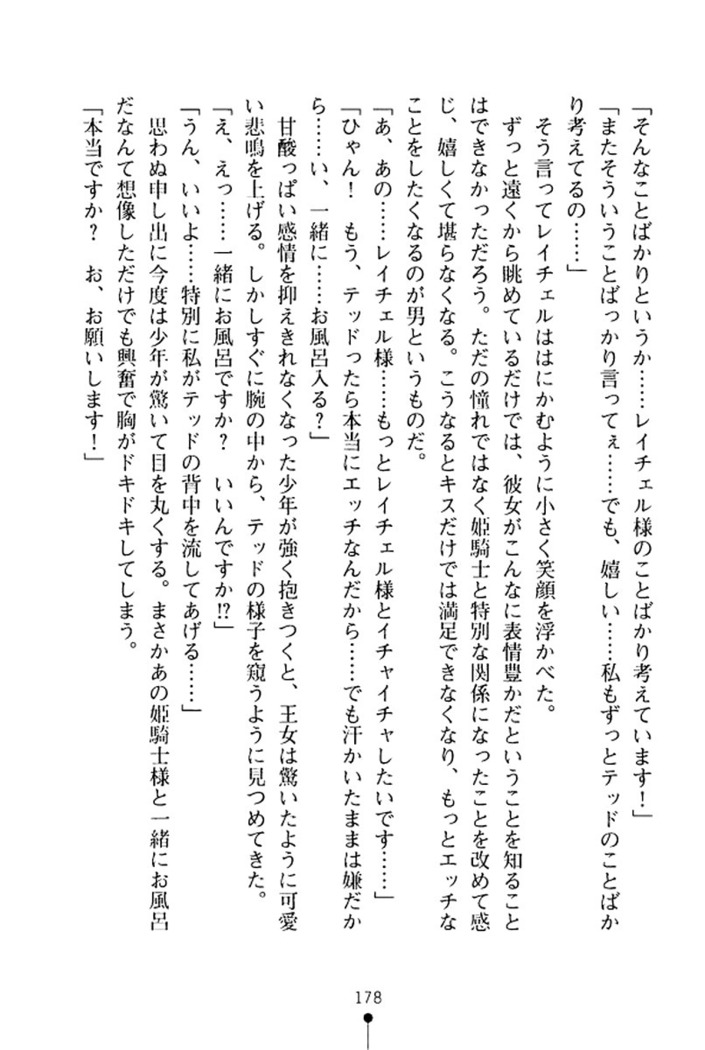 「そんなことばかりというか……レイチェル様のことばかり考えています！」
「またそういうことばっかり言ってぇ……でも、嬉しい……私もずっとテッドのことばか
り考えてるの……」
そう言ってレイチェルははにかむように小さく笑顔を浮かべた。
ずっと遠くから眺めているだけでは、彼女がこんなに表情豊かだということを知ること
はできなかっただろう。ただの憧れではなく姫騎士と特別な関係になったことを改めて感
じ、嬉しくて堪らなくなる。こうなるとキスだけでは満足できなくなり、もっとエッチな
ことをしたくなるのが男というものだ。
「あ、あの……レイチェル様……もっとレイチェル様とイチャイチャしたいです……」
「ひゃん！　もう、テッドったら本当にエッチなんだから……でも汗かいたままは嫌だか
ら……い、一緒に……お風呂入る？」
甘酸っぱい感情を抑えきれなくなった少年が強く抱きつくと、王女は驚いたように可愛
い悲鳴を上げる。しかしすぐに腕の中から、テッドの様子を窺うように見つめてきた。
「え、えっ……一緒にお風呂ですか？　いいんですか!?」
「うん、いいよ……特別に私がテッドの背中を流してあげる……」
思わぬ申し出に今度は少年が驚いて目を丸くする。まさかあの姫騎士様と一緒にお風呂
だなんて想像しただけでも興奮で胸がドキドキしてしまう。
「本当ですか？　お、お願いします！」
178